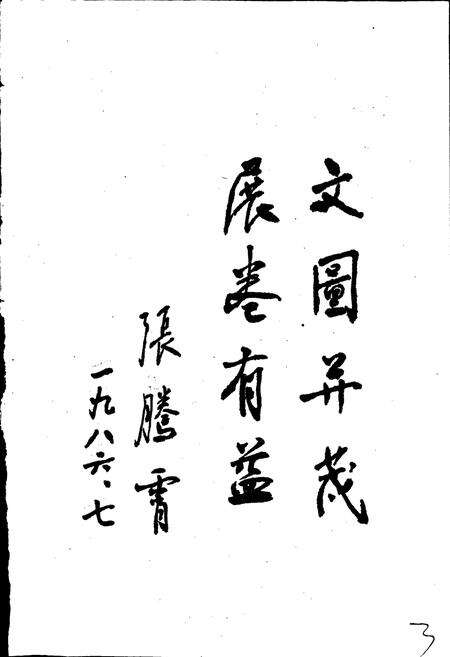 文圖并茂
展卷有益
張騰霄
一九八六、七
3